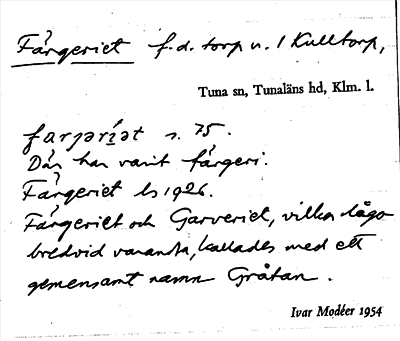 Färgeriet f.d. torp u. 1 Kulltorp,
Tuna sn, Tunaläns hd, Klm. l.
färjəríət s. 75.
Där har varit färgeri.
Färgeriet ls 1926.
Färgeriet och Garveriet, vilka lågo
bredvid varandra, kallades med ett
gemensamt namn Gråtan.
Ivar Modéer 1954